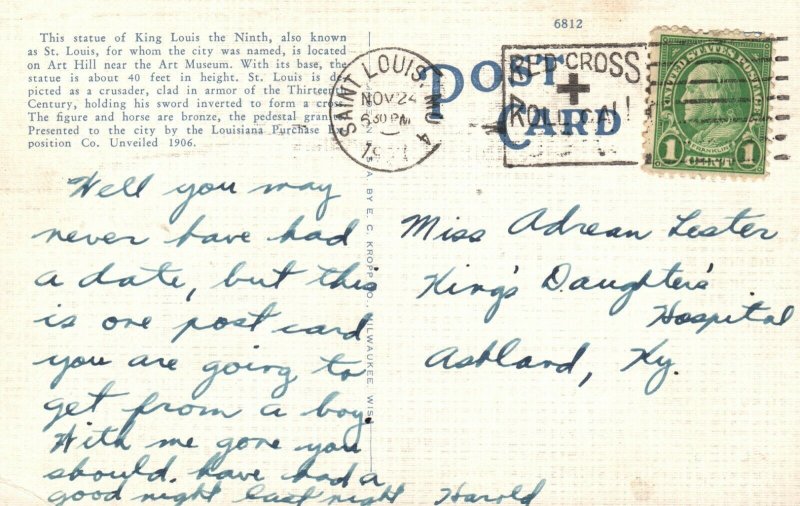 This statue of King Louis the Ninth, also known
as St. Louis, for whom the city was named, is located
on Art Hill near the Art Museum. With its base, the
statue is about 40 feet in height. St. Louis is de-
picted as a crusader, clad in armor of the Thirteenth
Century, holding his sword inverted to form a cross.
The figure and horse are bronze, the pedestal granite.
Presented to the city by the Louisiana Purchase Ex-
position Co. Unveiled 1906.
6812
POST
CARD
SAINT LOUIS, MO
NOV 24
630 PM
4
RED CROSS
ROLL CALL
UNITED STATES POSTAGE
FRANKLIN
1 CENT 1
BY E. C. KROPP CO., MILWAUKEE, WIS.
Well you may
never have had
a date, but this
is one post card
you are going to
get from a boy.
With me gone you
should have had a
good night last night Harold
Miss Adrean Lester
King's Daughter's
Hospital
Ashland, Ky.